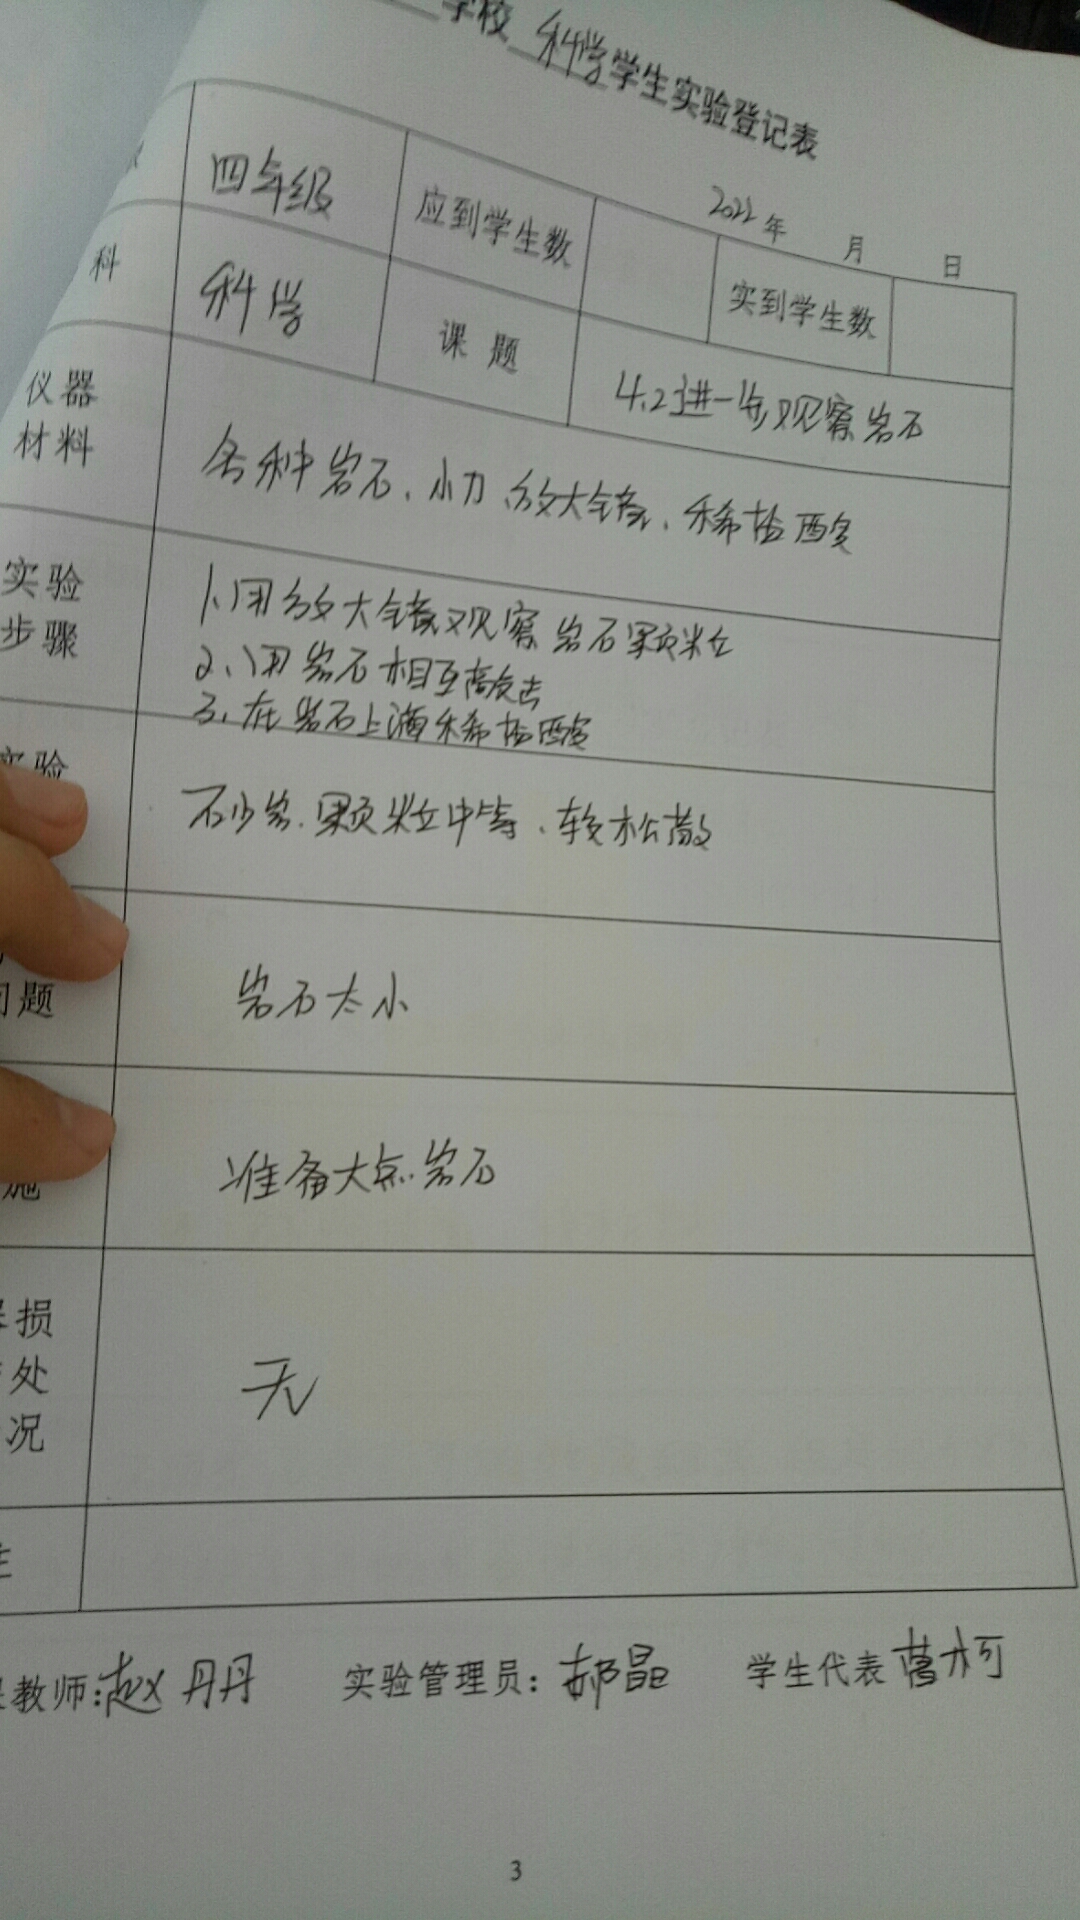 学校 科学学生实验登记表
2022年 月 日
四年级 应到学生数 实到学生数
科 科学 课题 4.2进一步观察岩石
仪器
材料
各种岩石、小刀、放大镜、稀盐酸
实验
步骤
1、用放大镜观察岩石颗粒
2、用岩石相互敲击
3、在岩石上滴稀盐酸
实验
砂岩、颗粒中等、较松散
问题
岩石太小
施
准备大点岩石
损
处
况
无
教师:赵丹丹 实验管理员:郝晶 学生代表 曹柯
3